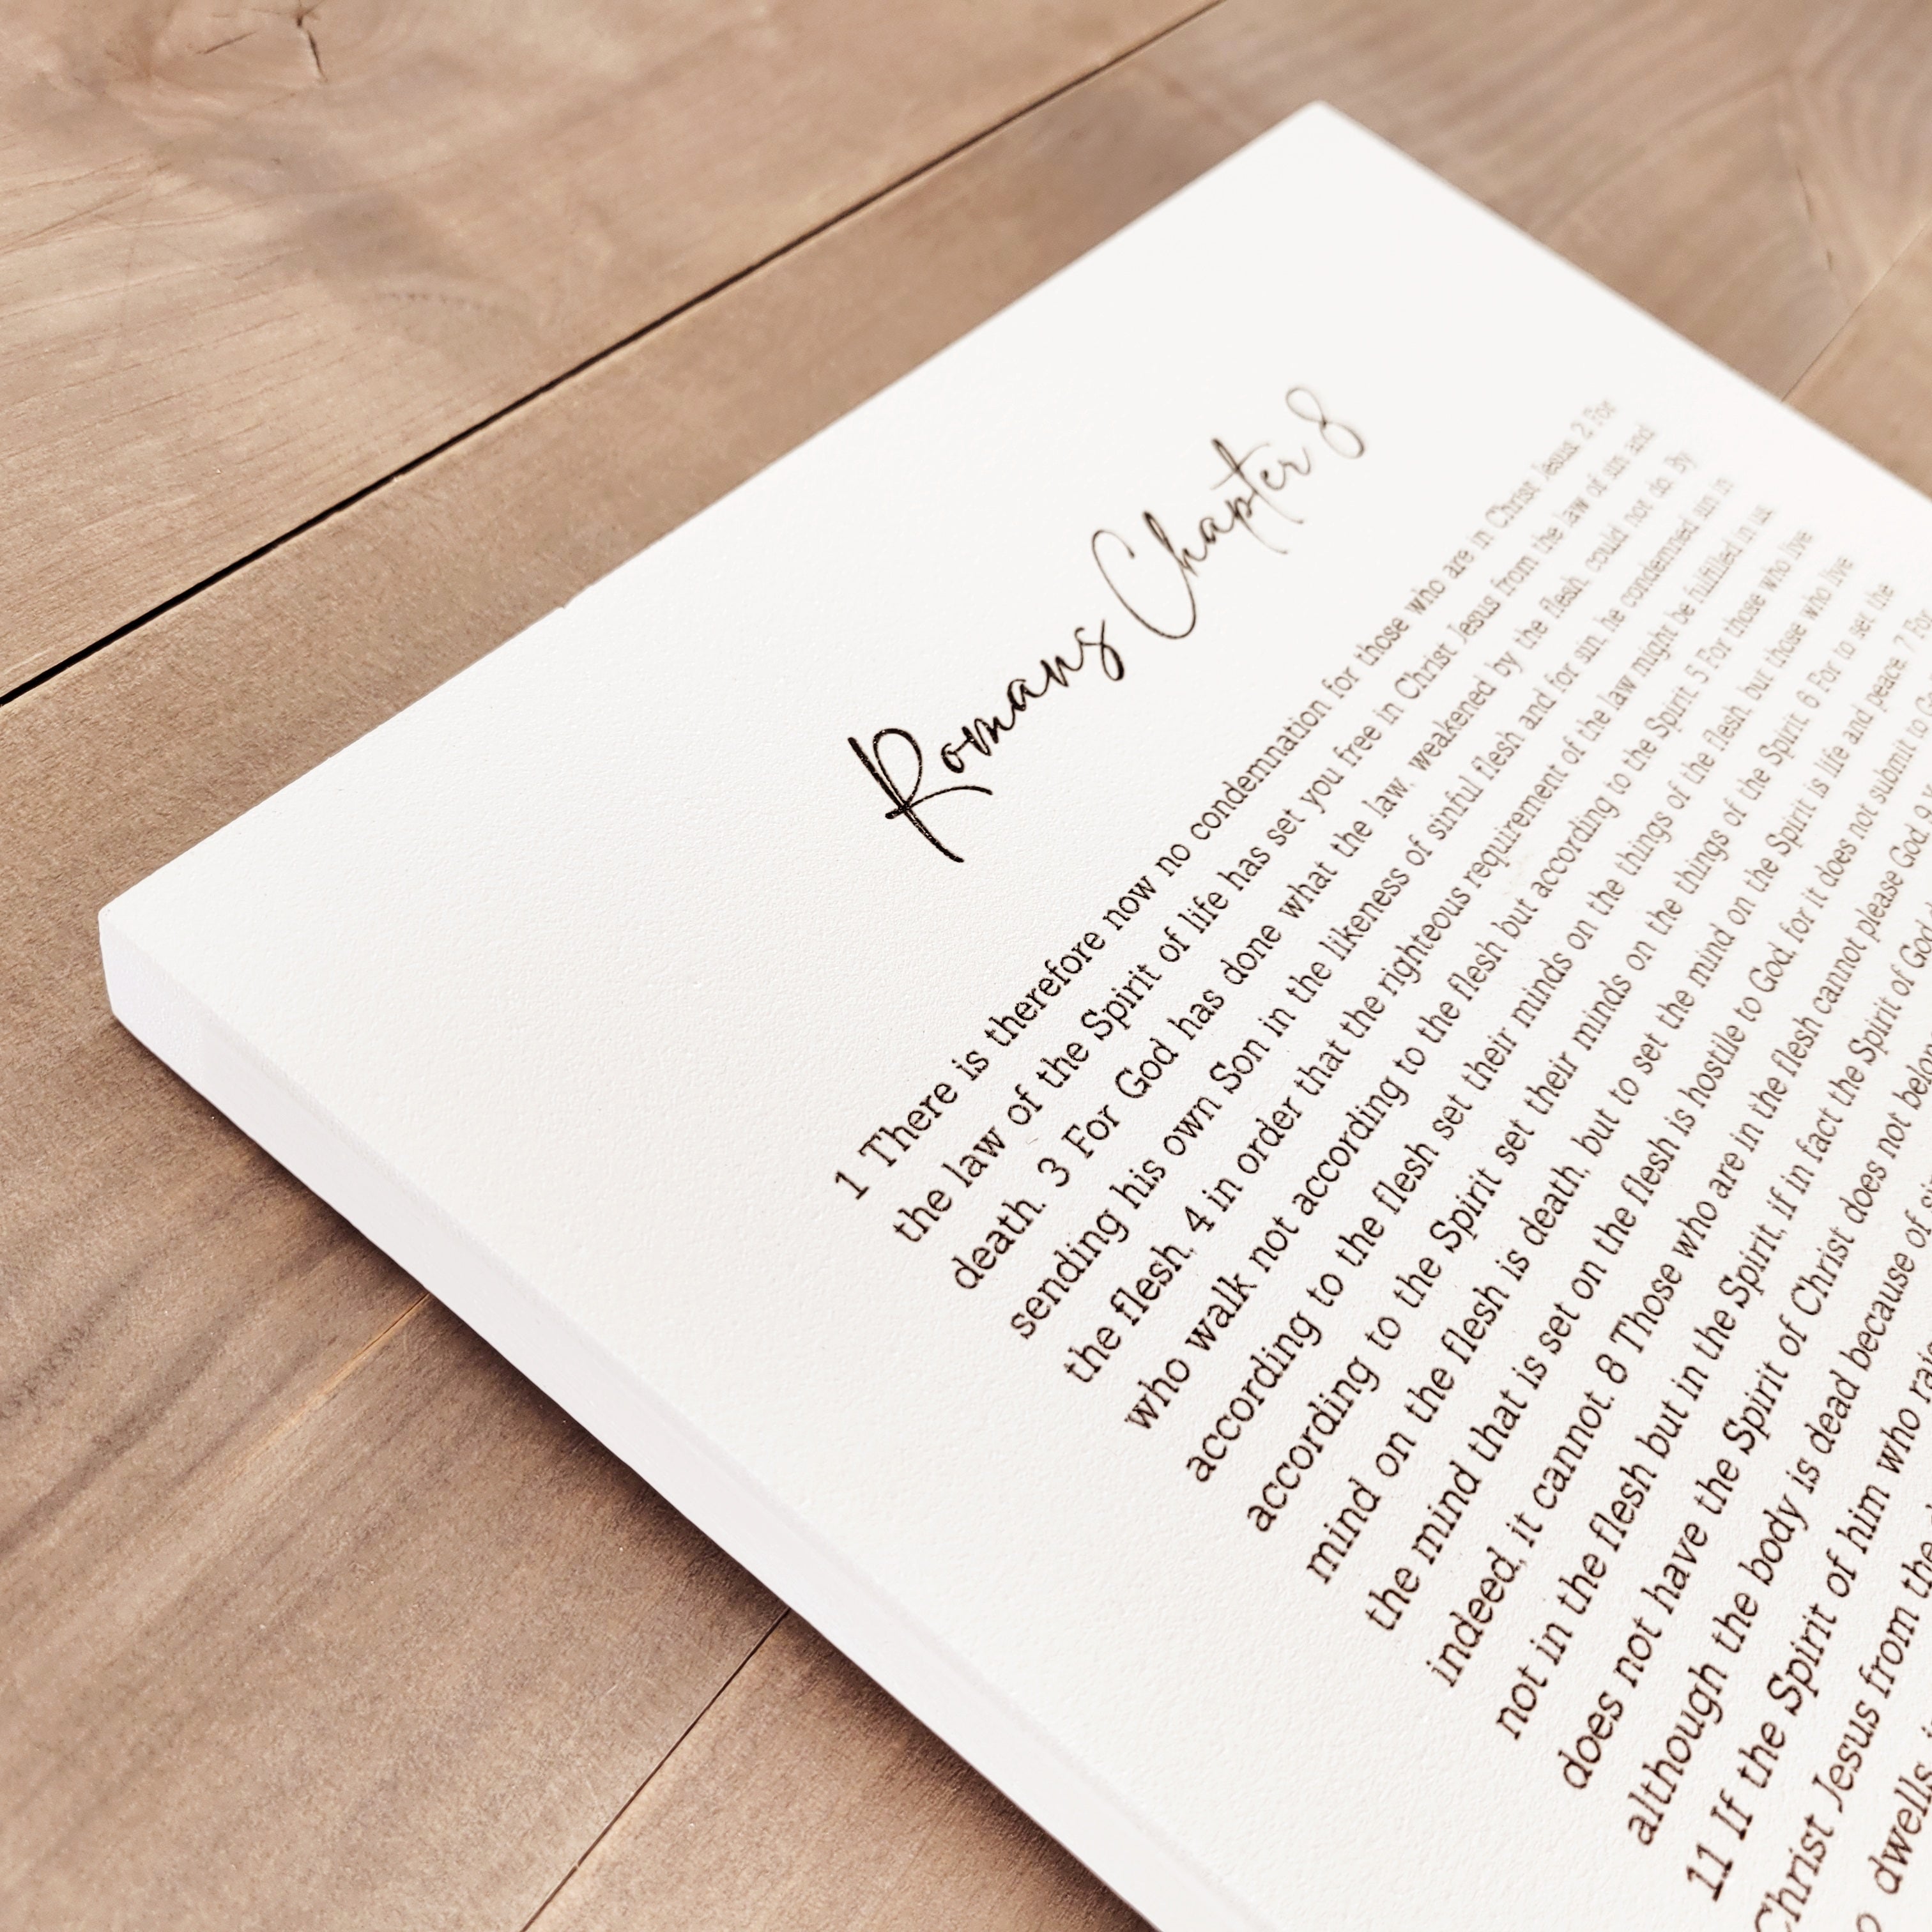 Romans Chapter 8
1 There is therefore now no condemnation for those who are in Christ Jesus. 2 For
the law of the Spirit of life has set you free in Christ Jesus from the law of sin and
death. 3 For God has done what the law, weakened by the flesh, could not do. By
sending his own Son in the likeness of sinful flesh and for sin, he condemned sin in
the flesh, 4 in order that the righteous requirement of the law might be fulfilled in us,
who walk not according to the flesh but according to the Spirit. 5 For those who live
according to the flesh set their minds on the things of the flesh, but those who live
according to the Spirit set their minds on the things of the Spirit. 6 For to set the
mind on the flesh is death, but to set the mind on the Spirit is life and peace. 7 For
the mind that is set on the flesh is hostile to God, for it does not submit to
indeed, it cannot. 8 Those who are in the flesh cannot please God. 9
not in the flesh but in the Spirit, if in fact the Spirit of God
does not have the Spirit of Christ does not
although the body is dead because of
11 If the Spirit of him who
Christ Jesus from the
dwells